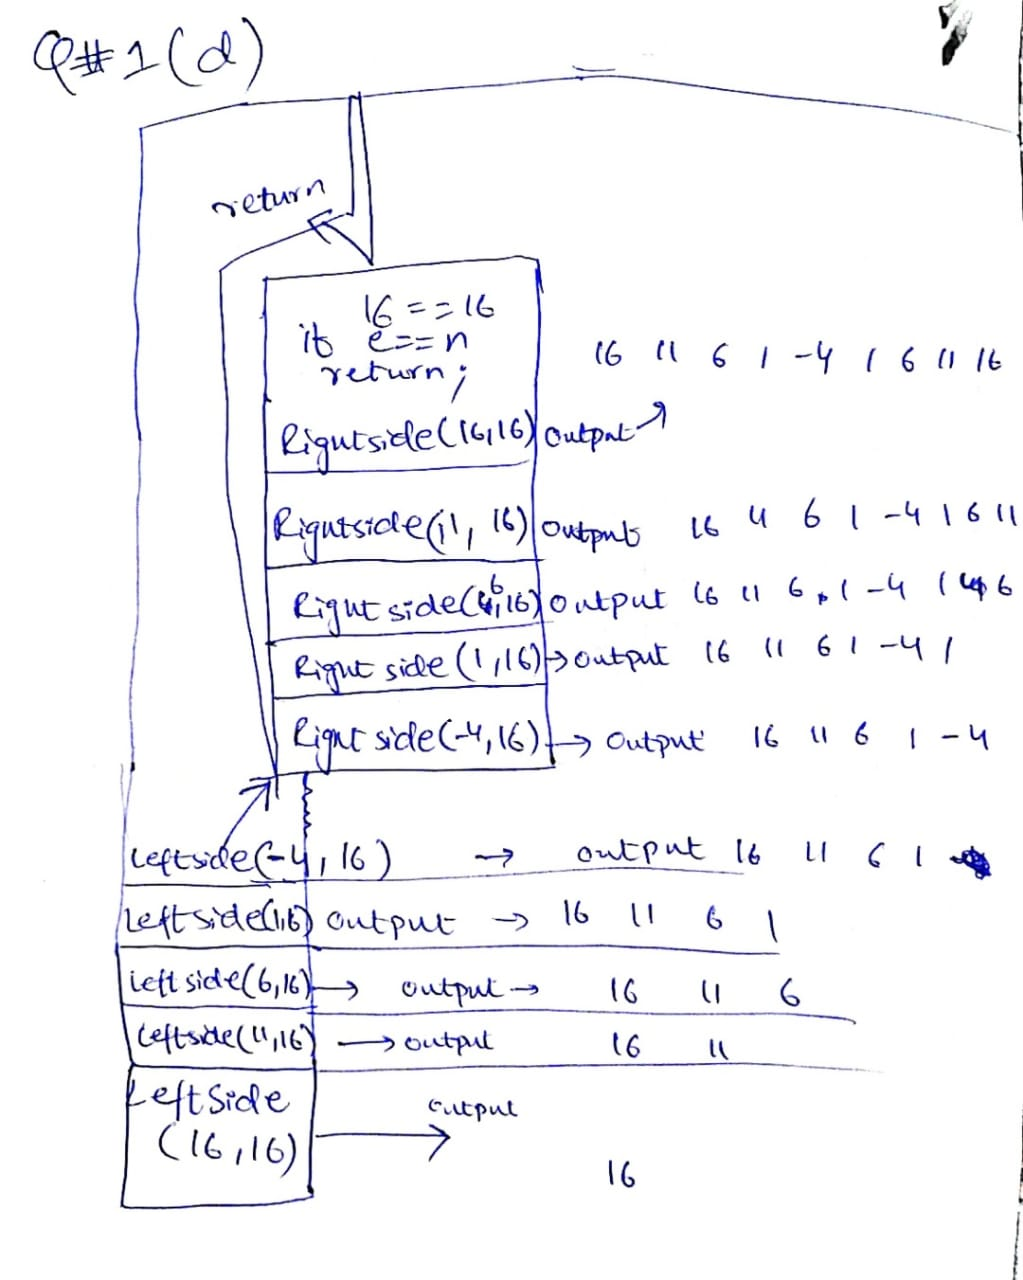 Q#1(d)
return
16 == 16
if e == n
return;
16 11 6 1 -4 1 6 11 16
Rightside(16,16) output
Rightside(11, 16) output 16 11 6 1 -4 1 6 11
Right side(6,16) output 16 11 6 1 -4 1 6
Right side (1,16) → output 16 11 6 1 -4 1
Right side(-4,16) → output 16 11 6 1 -4
Leftside(-4, 16) → output 16 11 6 1
Leftside(1,16) output → 16 11 6 1
Left side(6,16) → output → 16 11 6
Leftside(11,16) → output 16 11
LeftSide
(16,16) → output
16